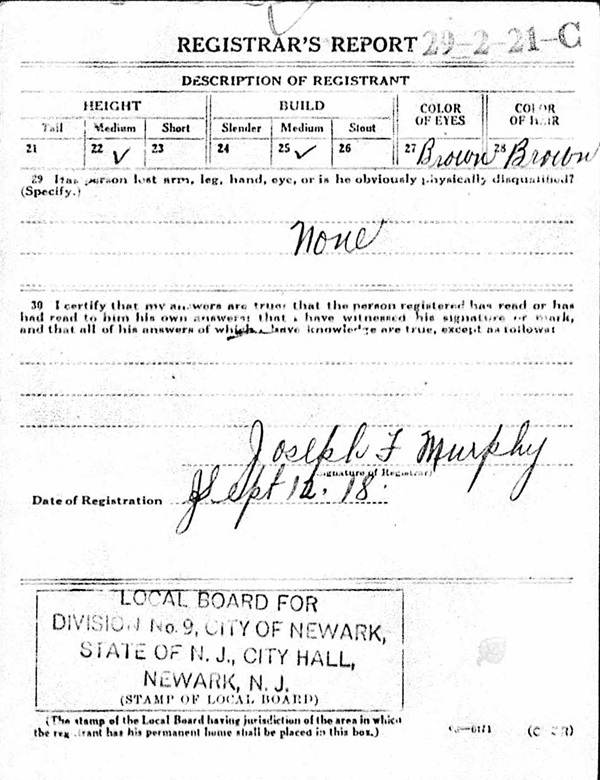 REGISTRAR'S REPORT 29-2-21-C
DESCRIPTION OF REGISTRANT
HEIGHT BUILD COLOR OF EYES COLOR OF HAIR
Tall Medium Short Slender Medium Stout
21 22 ✓ 23 24 25 ✓ 26 27 Brown 28 Brown
29 Has person lost arm, leg, hand, eye, or is he obviously physically disqualified?
(Specify.)
None
30 I certify that my answers are true; that the person registered has read or has
had read to him his own answers; that I have witnessed his signature or mark,
and that all of his answers of which I have knowledge are true, except as follows:
Joseph F Murphy
(Signature of Registrar)
Date of Registration Sept 12. 18.
LOCAL BOARD FOR
DIVISION No. 9, CITY OF NEWARK,
STATE OF N. J., CITY HALL,
NEWARK, N. J.
(STAMP OF LOCAL BOARD)
(The stamp of the Local Board having jurisdiction of the area in which
the registrant has his permanent home shall be placed in this box.)